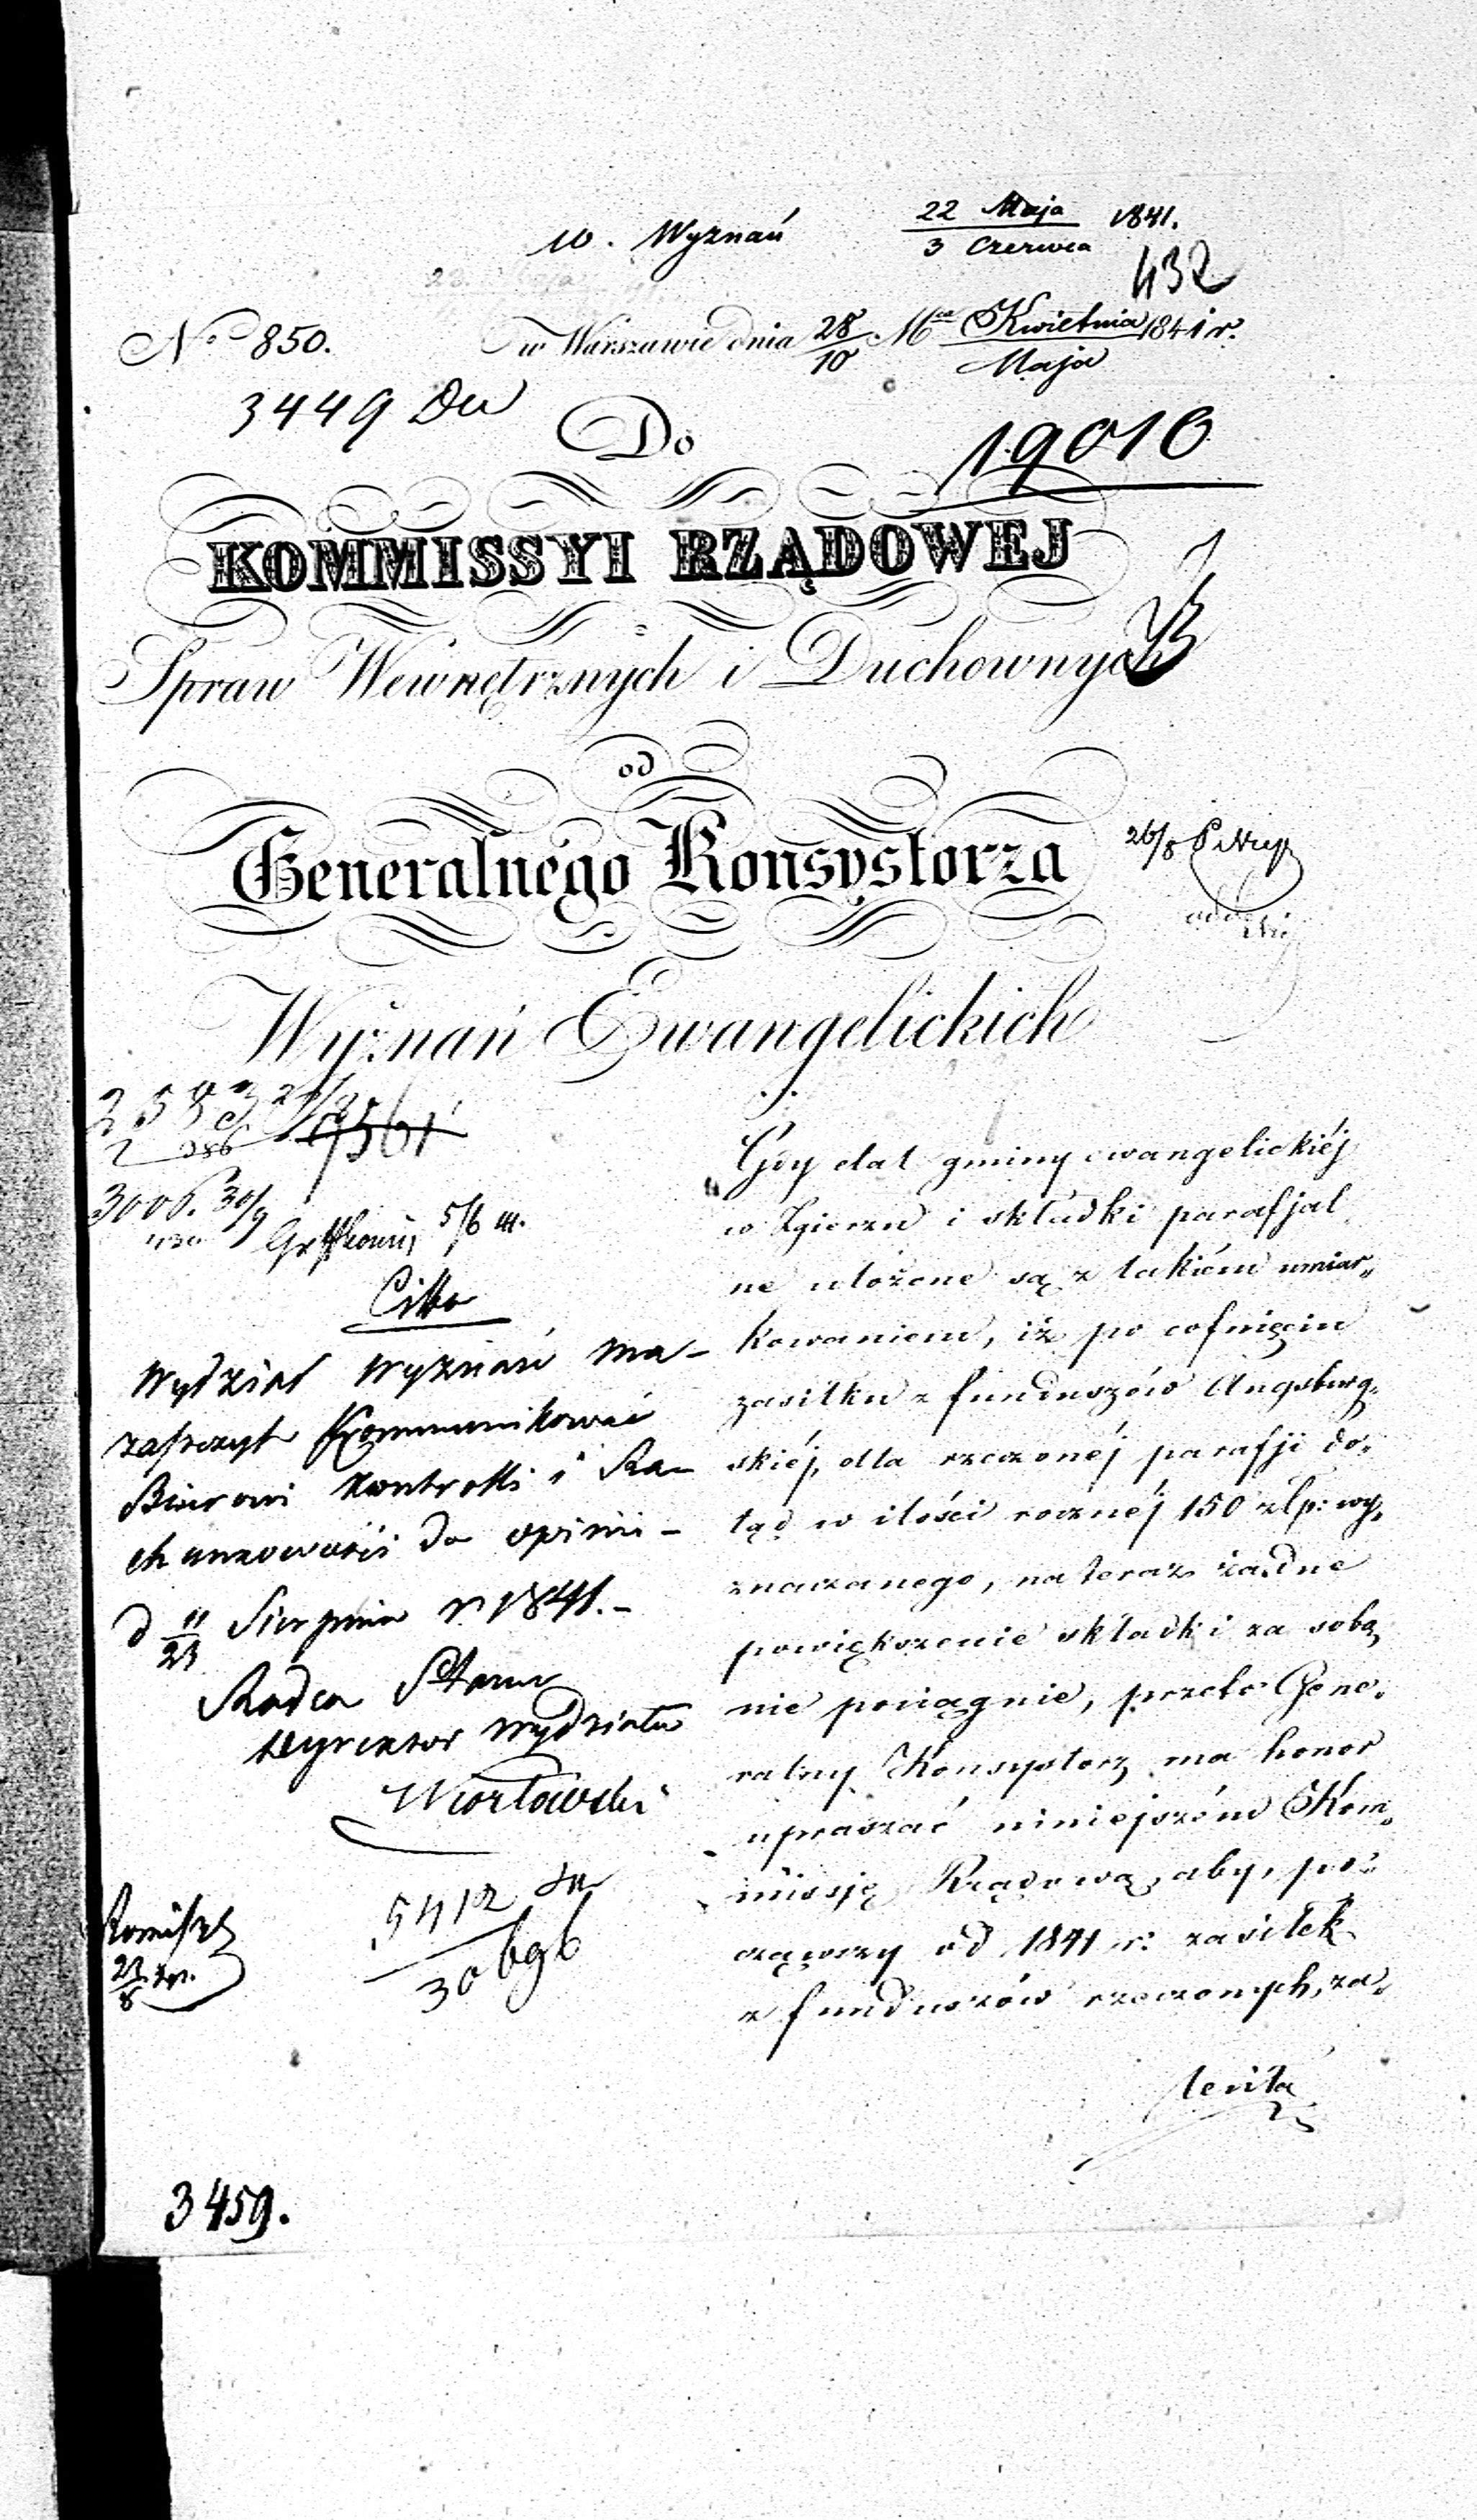 w. Wyznań 22 Maja / 3 Czerwca 1841.
432
No 850. w Warszawie dnia 28/10 Mca Kwietnia/Maja 1841 r.
3449 Du
Do
19010
KOMMISSYI RZĄDOWEJ
Spraw Wewnętrznych i Duchownych
od
Generalnego Konsystorza
26/8
Wyznań Ewangelickich
9561
3006. 30/9
5/6
Cito
Wydział Wyznań ma
zaprzyt kommunikować
Biurowi Kontrolli i Ra-
chunkowości do opinii -
d 11/23 Sierpnia r 1841. -
Radca Stanu
Dyrektor Wydziału
5412
30696
23/8
3459.
Gdy etat gminy ewangelickiéj
w Zgierzu i składki parafjal
ne ułożone są z takiém umiar„
kowaniem, iż po cofnięciu
zasiłku z funduszów Augsburg„
skiéj, dla rzeczonéj parafji do„
tąd w ilości rocznéj 150 złp: wy„
znaczanego, na teraz żadne
powiększenie składki za sobą
nie pociągnie, przeto Gene„
ralny Konsystorz ma honor
upraszać niniejszém Kom„
missję Rządową, aby, po„
cząwszy od 1841 r: zasiłek
z funduszów rzeczonych, za„